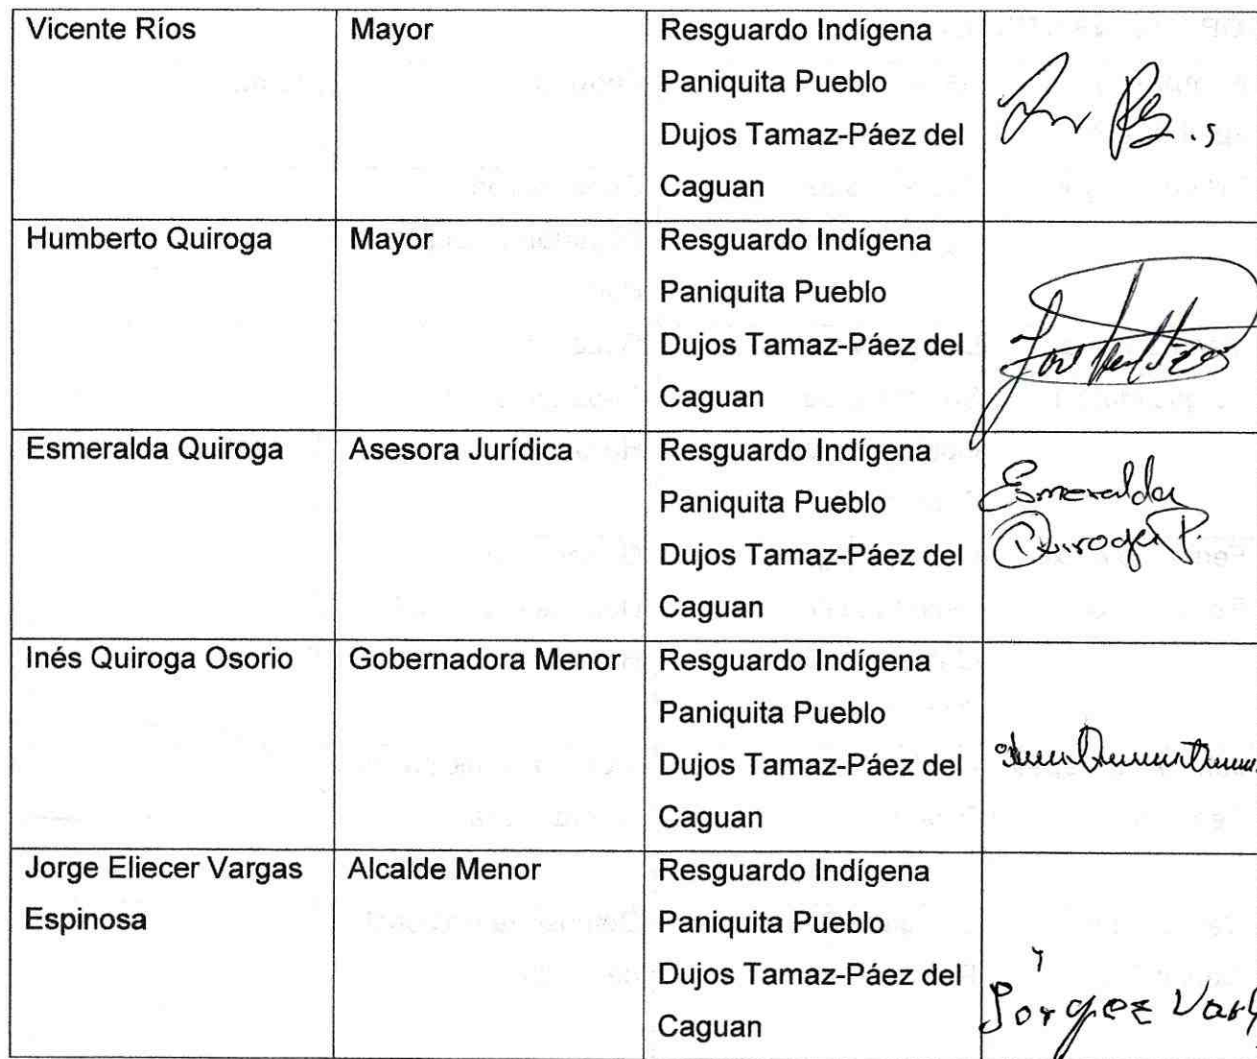 Vicente Ríos
Mayor
Resguardo Indígena
Paniquita Pueblo
Dujos Tamaz-Páez del
Caguan
Humberto Quiroga
Mayor
Resguardo Indígena
Paniquita Pueblo
Dujos Tamaz-Páez del
Caguan
Esmeralda Quiroga
Asesora Jurídica
Resguardo Indígena
Paniquita Pueblo
Dujos Tamaz-Páez del
Caguan
Esmeralda
Quiroga P.
Inés Quiroga Osorio
Gobernadora Menor
Resguardo Indígena
Paniquita Pueblo
Dujos Tamaz-Páez del
Caguan
Jorge Eliecer Vargas
Espinosa
Alcalde Menor
Resguardo Indígena
Paniquita Pueblo
Dujos Tamaz-Páez del
Caguan